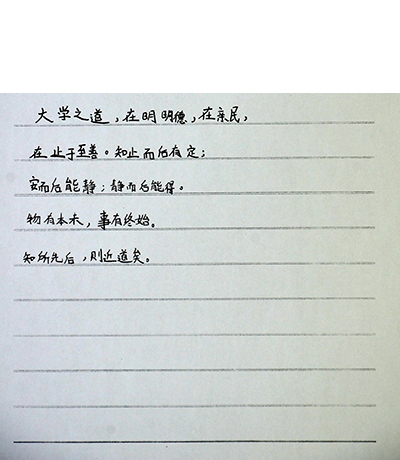 大学之道，在明明德，在亲民，
在止于至善。知止而后有定；
安而后能静；静而后能得。
物有本末，事有终始。
知所先后，则近道矣。